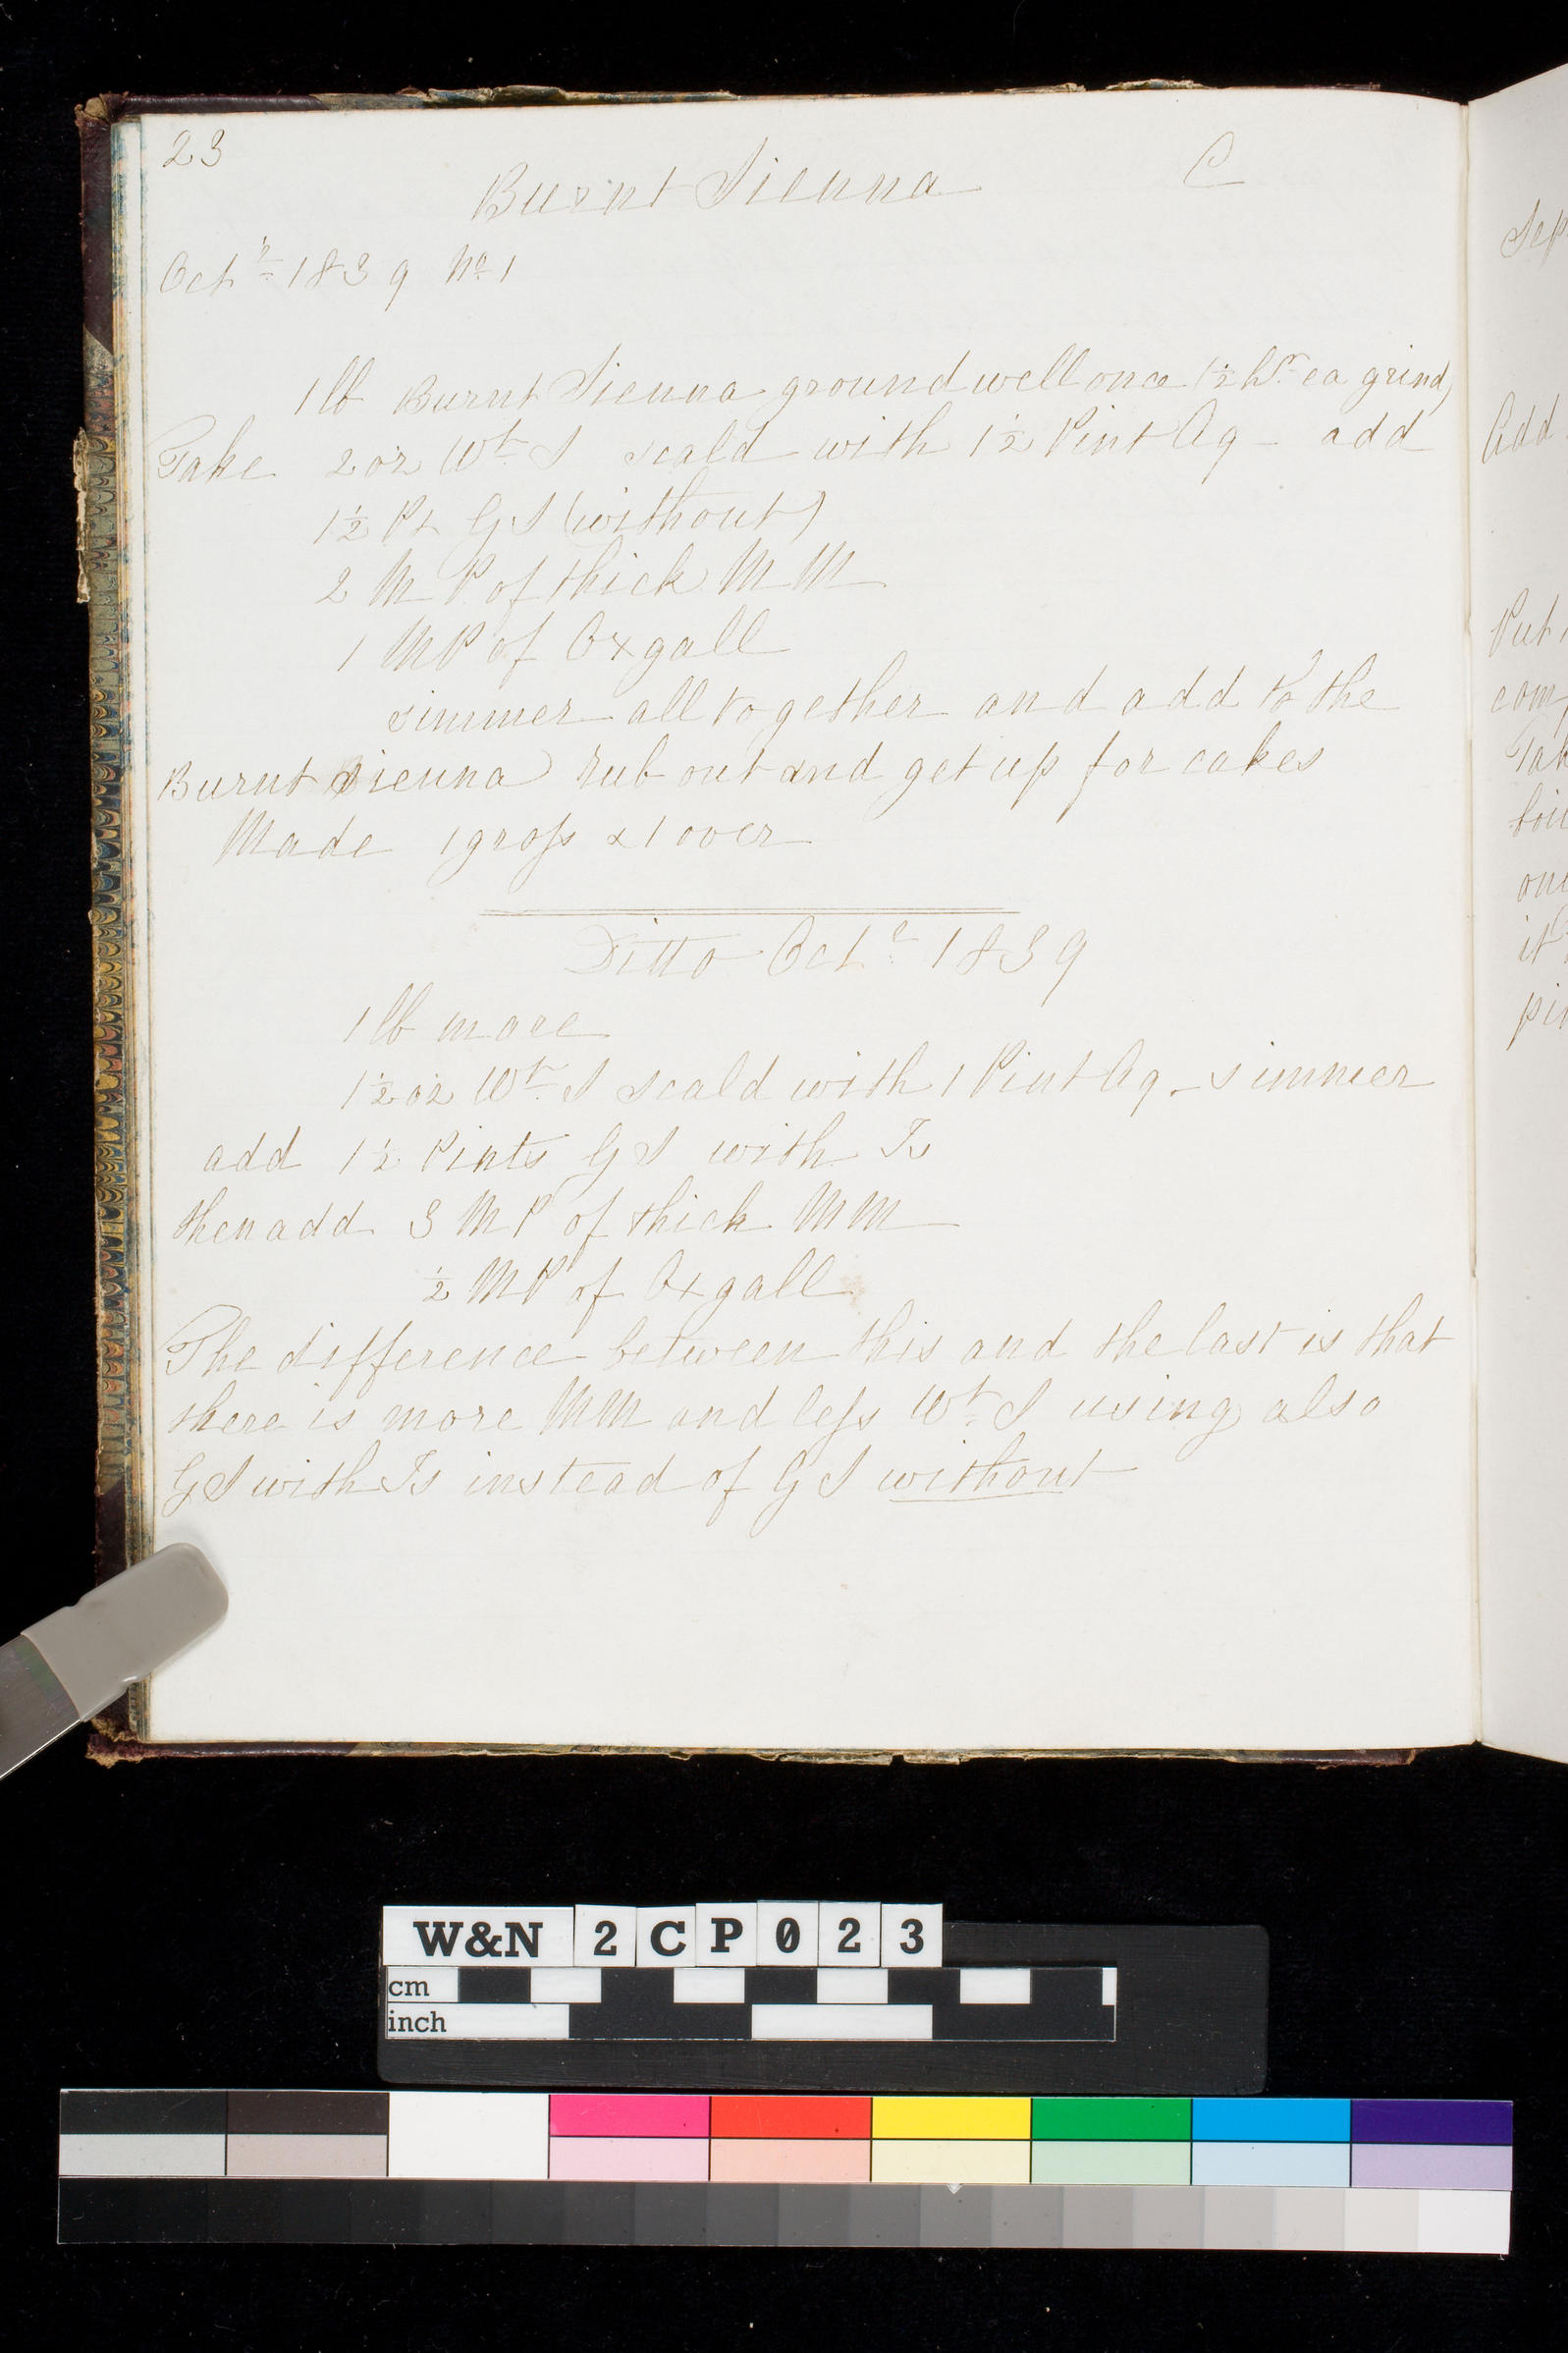 23
Burnt Sienna C
Octr 1839 No 1
1 lb Burnt Sienna ground well once 1½ hr ea grind,
Take 2 oz Wt S scald with 1½ Pint Aq - add
1½ Pt G S (without)
2 M P of thick M M
1 M P of Oxgall
simmer all together and add to the
Burnt Sienna rub out and get up for cakes
Made 1 groſs & 1 over
Ditto Octr 1839
1 lb more
1½ oz Wt S scald with 1 Pint Aq - simmer
add 1½ Pints G S with Is
then add 3 M P of thick M M
½ M P of Oxgall
The difference between this and the last is that
there is more M M and leſs Wt S using also
G S with Is instead of G S without
Sep
Add
Put
com
Tak
boi
on
it
pi
W&N 2CP023
cm
inch